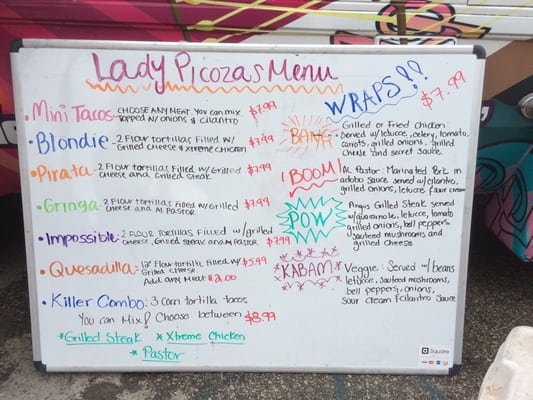 Lady Picozas Menu
Mini Tacos: CHOOSE ANY MEAT. YOU CAN MIX $7.99
TOPPED W/ ONIONS & CILANTRO
Blondie: 2 Flour tortillas Filled w/ $7.99
Grilled cheese & Xtreme chicken
Pirata: 2 Flour tortillas Filled w/ Grilled $7.99
Cheese and Grilled steak
Gringa: 2 Flour tortillas Filled w/ Grilled $7.99
Cheese and Al Pastor
Impossible: 2 Flour Tortillas Filled w/ grilled
Cheese, Grilled steak and Al Pastor $7.99
Quesadilla: 12" Flour tortilla Filled w/ $5.99
Grilled Cheese
Add any Meat $2.00
Killer Combo: 3 Corn tortilla tacos
You can Mix! Choose between $8.99
*Grilled Steak *Xtreme Chicken
*Pastor
WRAPS!! $7.99
BANG
Grilled or Fried Chicken:
Served w/ letucce, celery, tomato,
carrots, grilled onions, grilled
cheese and secret sauce.
BOOM!
Al Pastor: Marinated Pork in
adobo sauce served w/ cilantro,
grilled onions, letucce, sour cream
POW
Angus Grilled Steak served
w/ guacamole, letucce, tomato
grilled onions, bell peppers
sauteed mushrooms and
grilled cheese.
KABAM
Veggie: Served w/ beans
letucce, sauteed mushrooms,
bell peppers, onions,
sour cream & cilantro sauce
Square